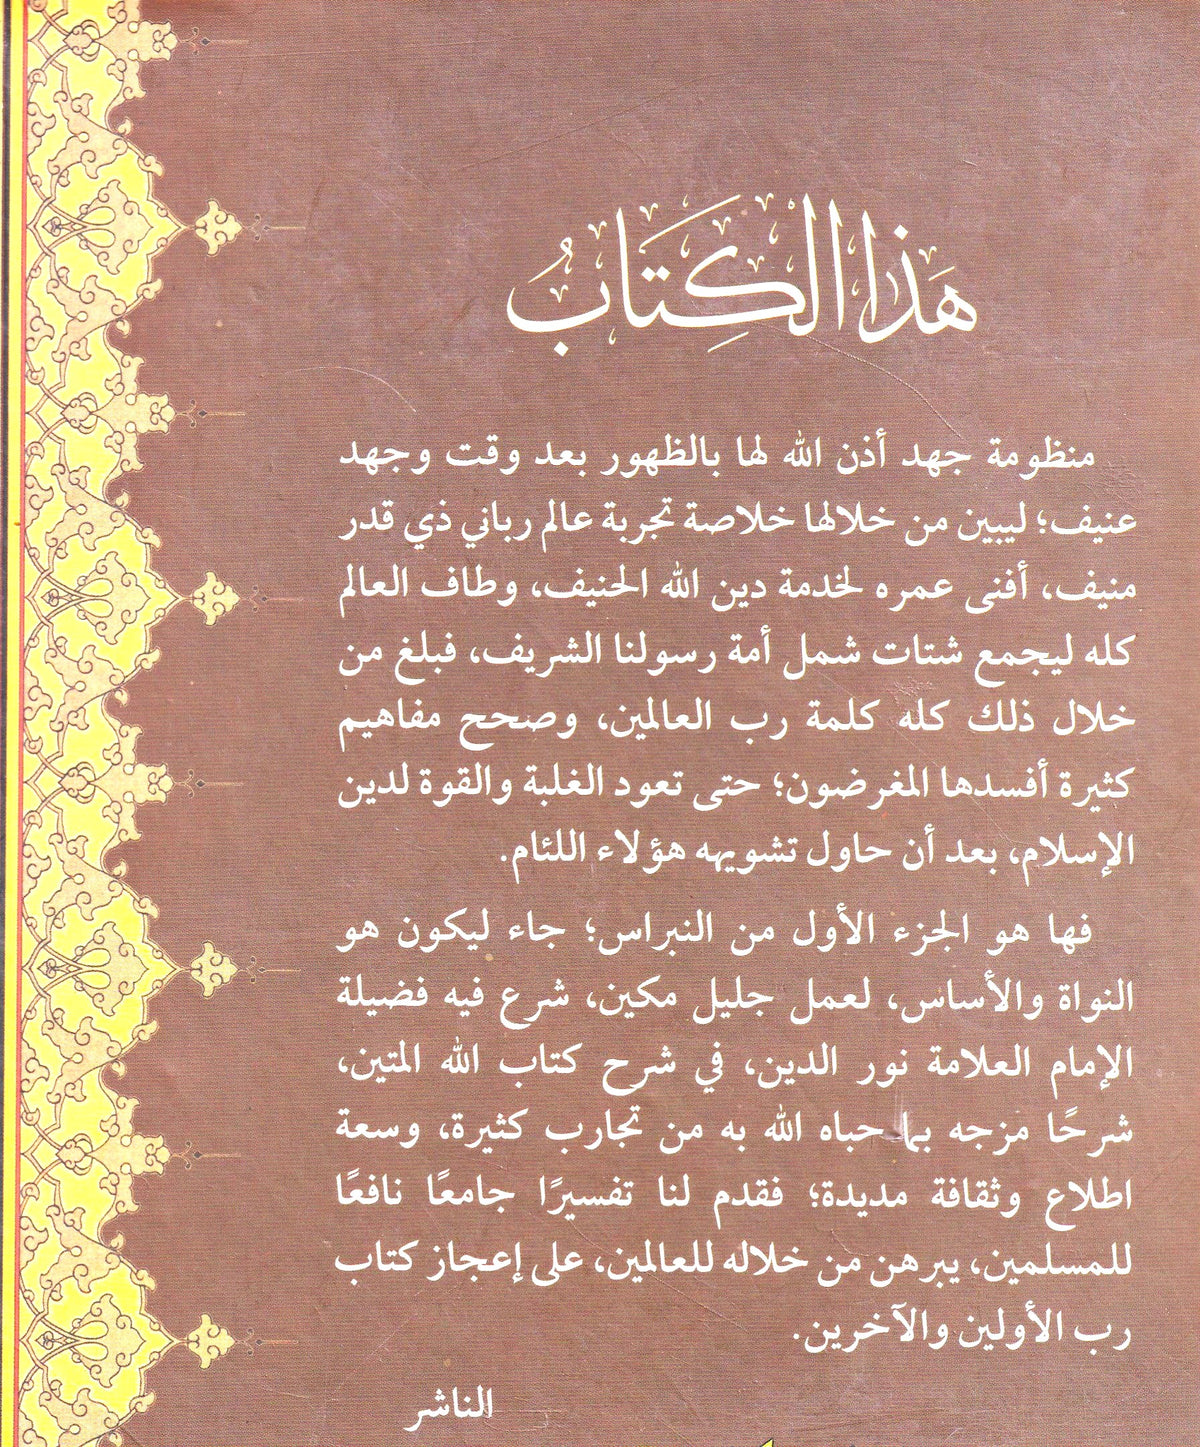 هَذا الكِتَابُ
منظومة جهد أذن الله لها بالظهور بعد وقت وجهد
عنيف؛ ليبين من خلالها خلاصة تجربة عالم رباني ذي قدر
منيف، أفنى عمره لخدمة دين الله الحنيف، وطاف العالم
كله ليجمع شتات شمل أمة رسولنا الشريف، فبلغ من
خلال ذلك كله كلمة رب العالمين، وصحح مفاهيم
كثيرة أفسدها المغرضون؛ حتى تعود الغلبة والقوة لدين
الإسلام، بعد أن حاول تشويهه هؤلاء اللئام.
فها هو الجزء الأول من النبراس؛ جاء ليكون هو
النواة والأساس، لعمل جليل مكين، شرع فيه فضيلة
الإمام العلامة نور الدين، في شرح كتاب الله المتين،
شرحًا مزجه بما حباه الله به من تجارب كثيرة، وسعة
اطلاع وثقافة مديدة؛ فقدم لنا تفسيرًا جامعًا نافعًا
للمسلمين، يبرهن من خلاله للعالمين، على إعجاز كتاب
رب الأولين والآخرين.
الناشر